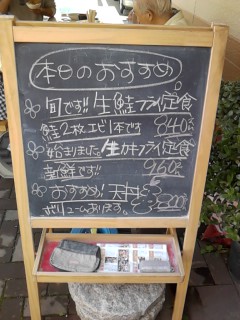 本日のおすすめ
旬です!! 生鮭フライ定食
鮭2枚エビ1本です 840
始まりました。生カキフライ定食
新鮮です!! 960
おすすめ!! 天丼
ボリュームあります。